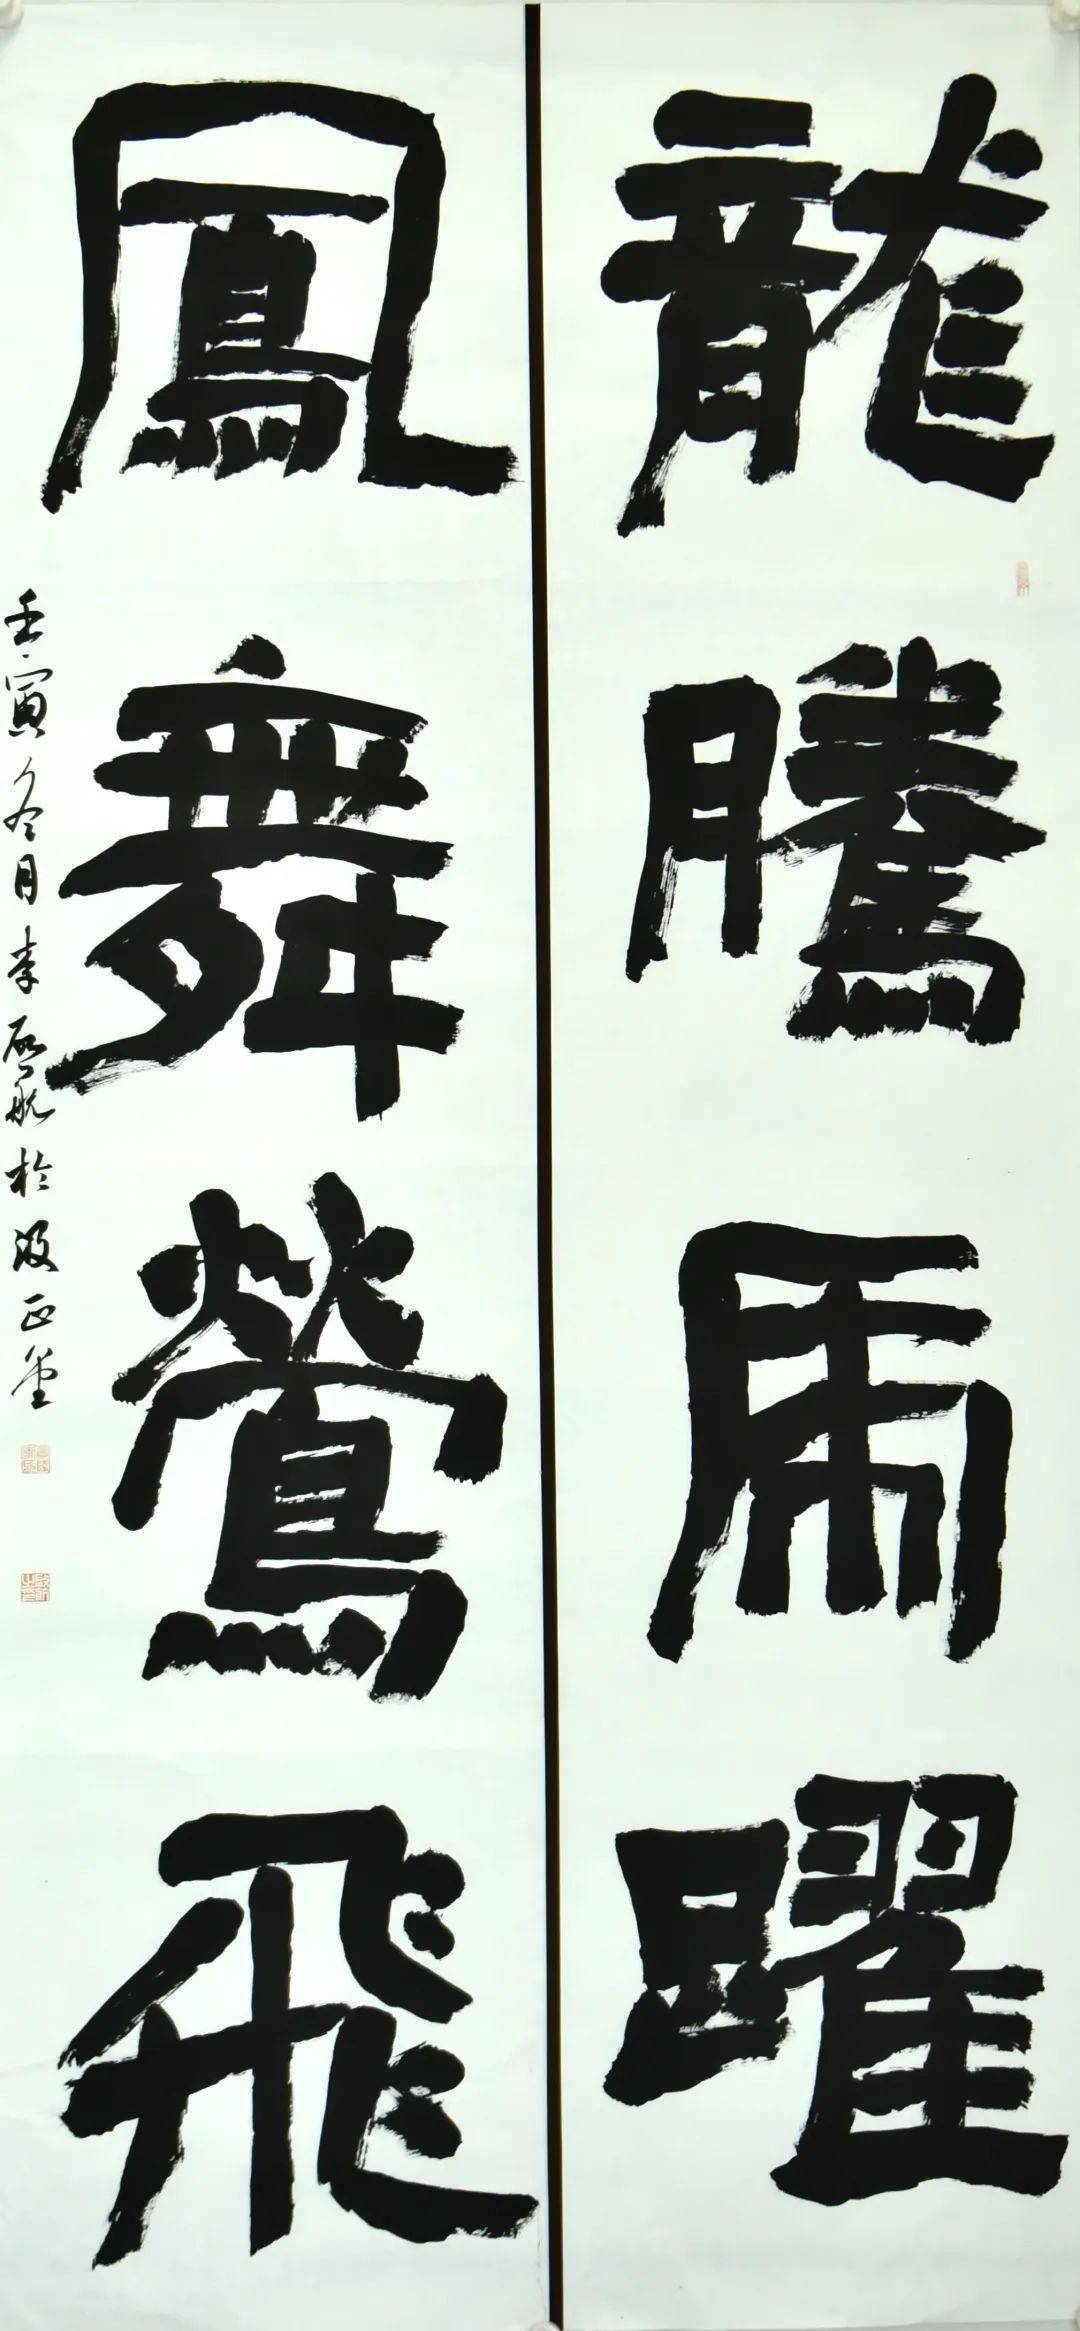 龍騰虎躍
鳳舞鶯飛
壬寅冬月李啟航於汲正堂